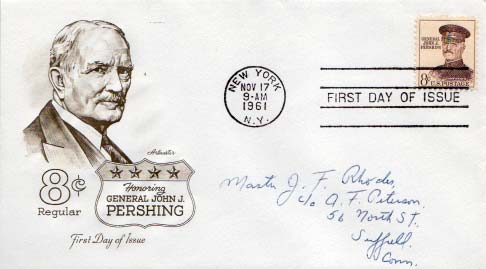 Artmaster
8¢
Regular
Honoring
GENERAL JOHN J.
PERSHING
First Day of Issue
NEW YORK
NOV 17
9-AM
1961
N.Y.
FIRST DAY OF ISSUE
GENERAL
JOHN J.
PERSHING
8¢
U.S. POSTAGE
J. F. Rhodes,
c/o A. F. Peterson
56 North St.,
Suffield,
Conn.